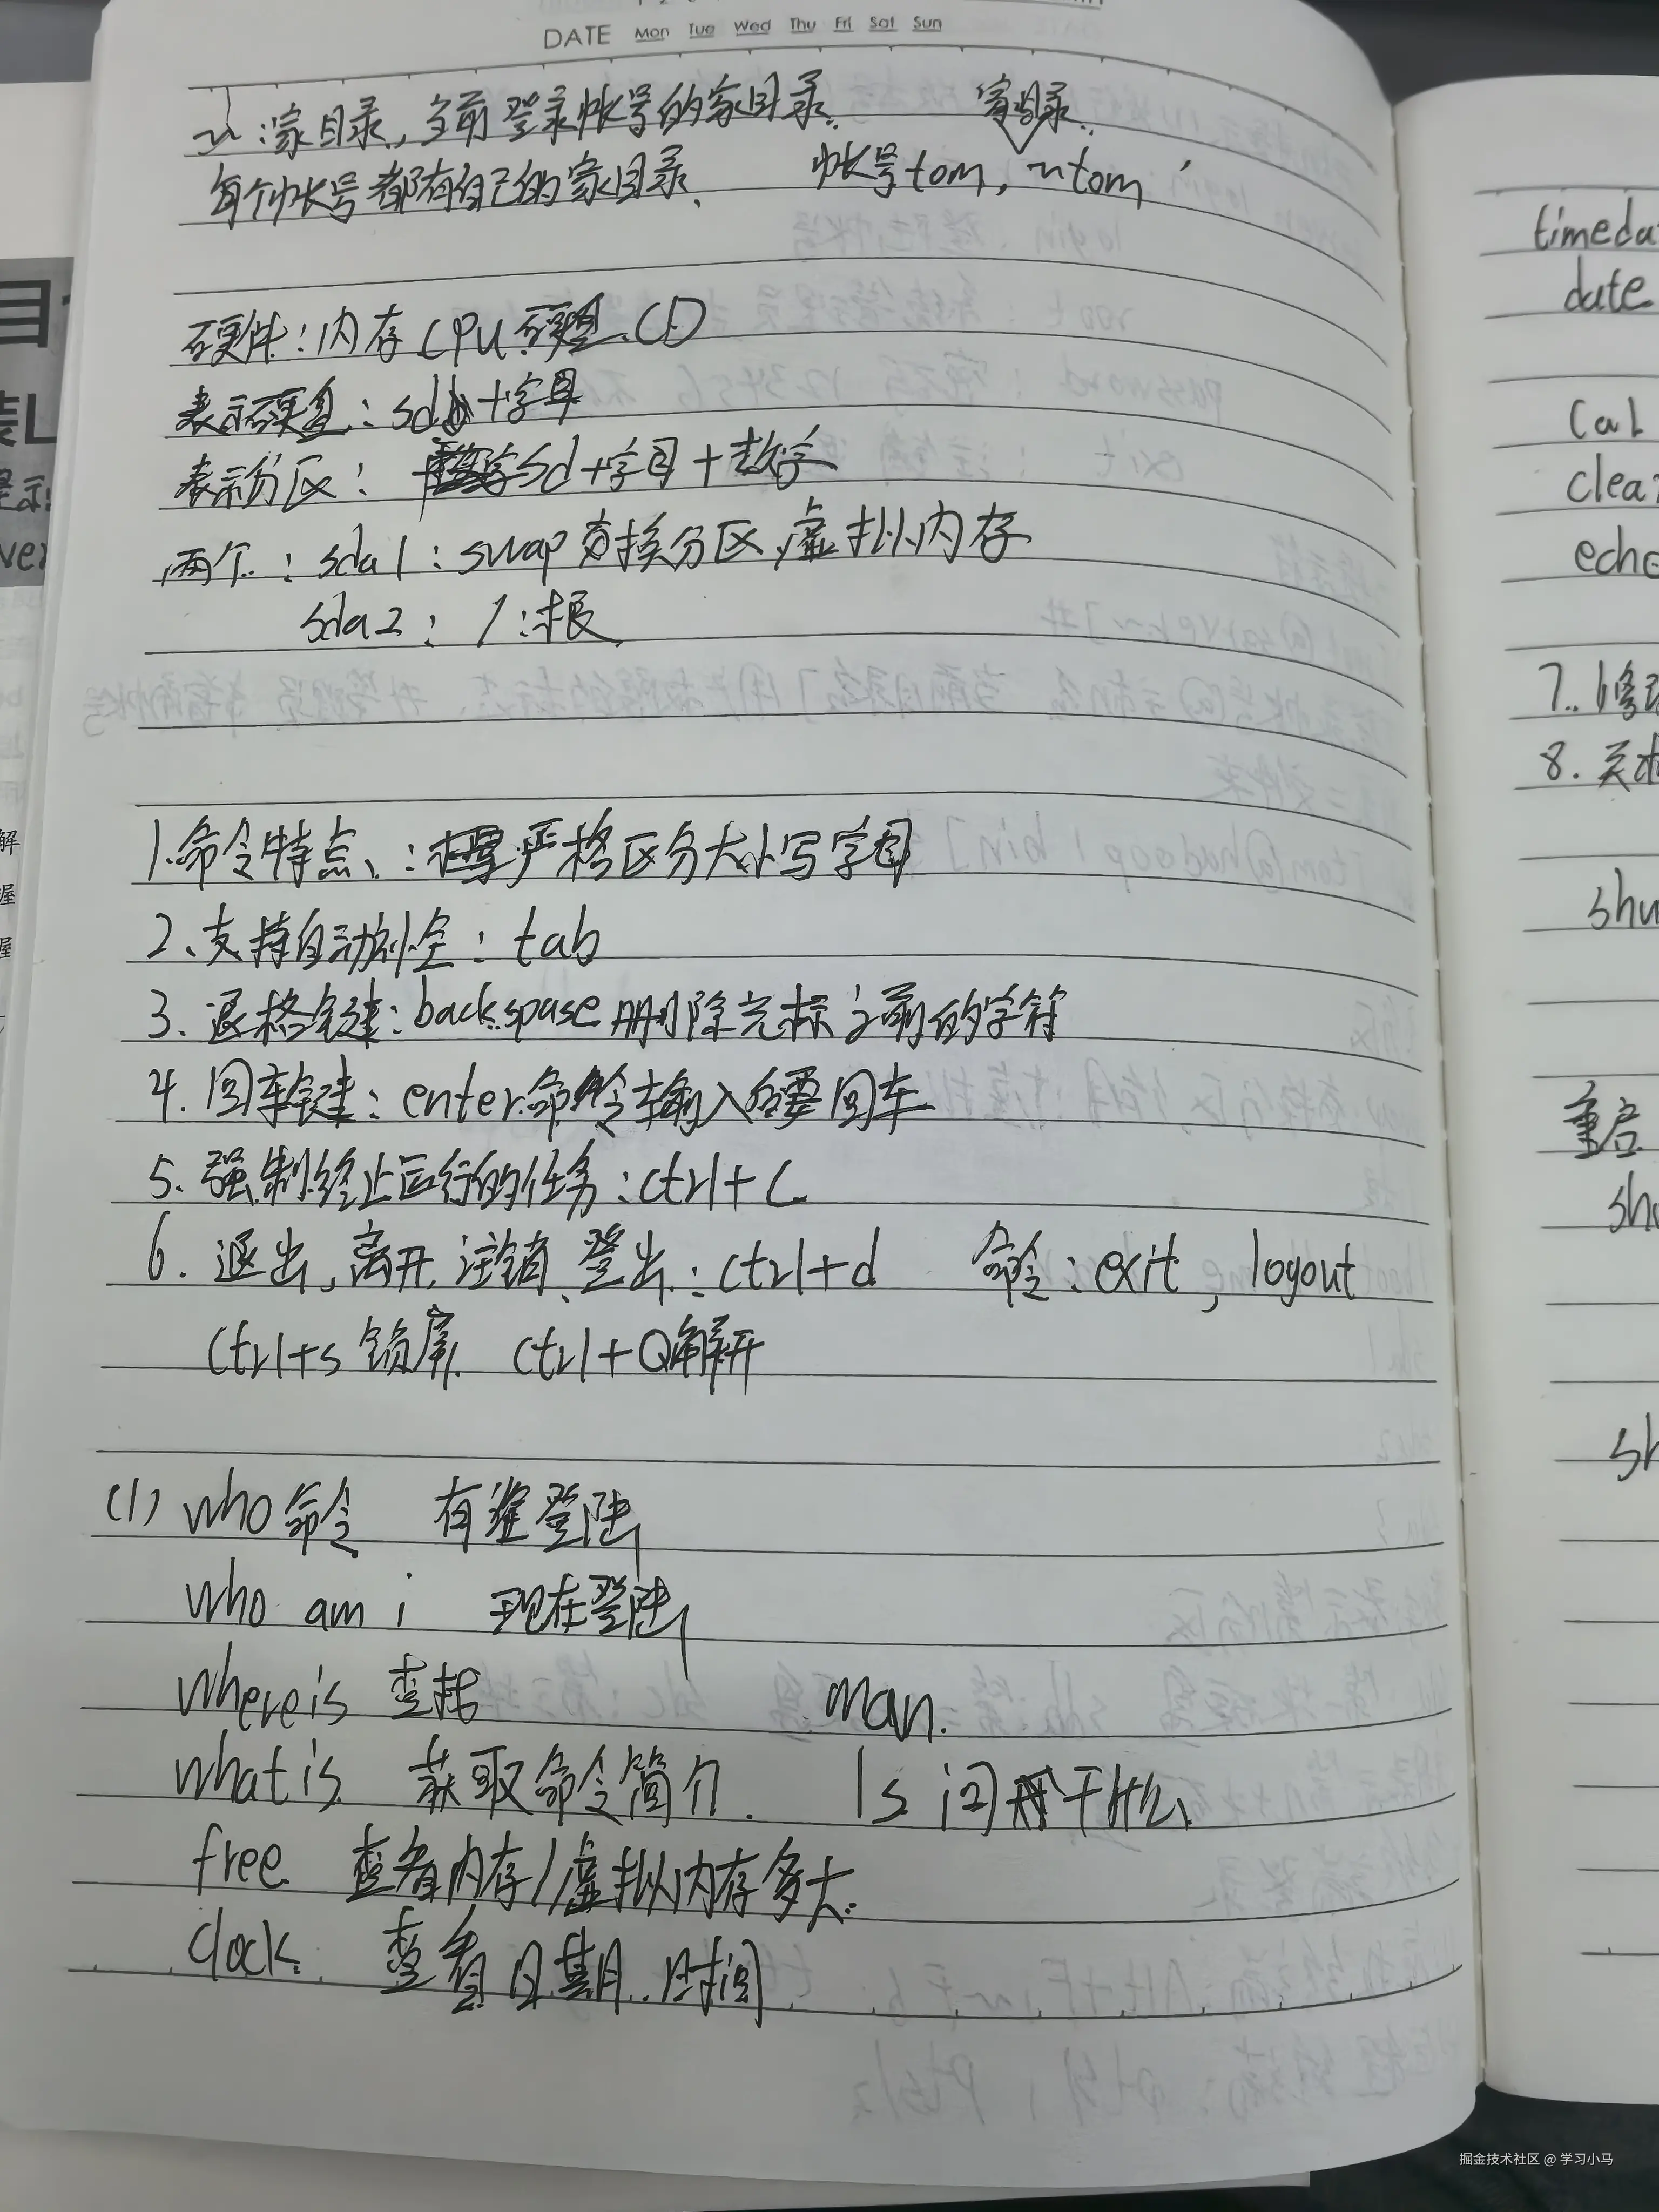 DATE Mon Tue Wed Thu Fri Sat Sun
~:家目录,当前登录帐号的家目录. 家目录.
每个帐号都有自己的家目录. 帐号tom, ~tom
硬件:内存.CPU.硬盘.CD
表示硬盘:sd+字母
表示分区:sd+字母+数字
两个:sda1:swap交换分区,虚拟内存
sda2:/:根.
1.命令特点、:严格区分大小写字母
2、支持自动补全:tab
3.退格键:backspase删除光标之前的字符
4.回车键:enter.命令输入后要回车
5.强制终止运行的任务:ctrl+C
6.退出,离开.注销、登出:ctrl+d 命令:exit, logout
Ctrl+s 锁屏. ctrl+Q解开
(1) who命令 有谁登陆
who am i 现在登陆
whereis 查找 man.
what is 获取命令简介. ls 问干什么
free 查看内存/虚拟内存多大.
clock 查看日期.时间
timeda
date
cal
clea
echo
7.修
8.关
shu
重启
shu
sh
目
装L
ver
解
握
握
掘金技术社区 @ 学习小马